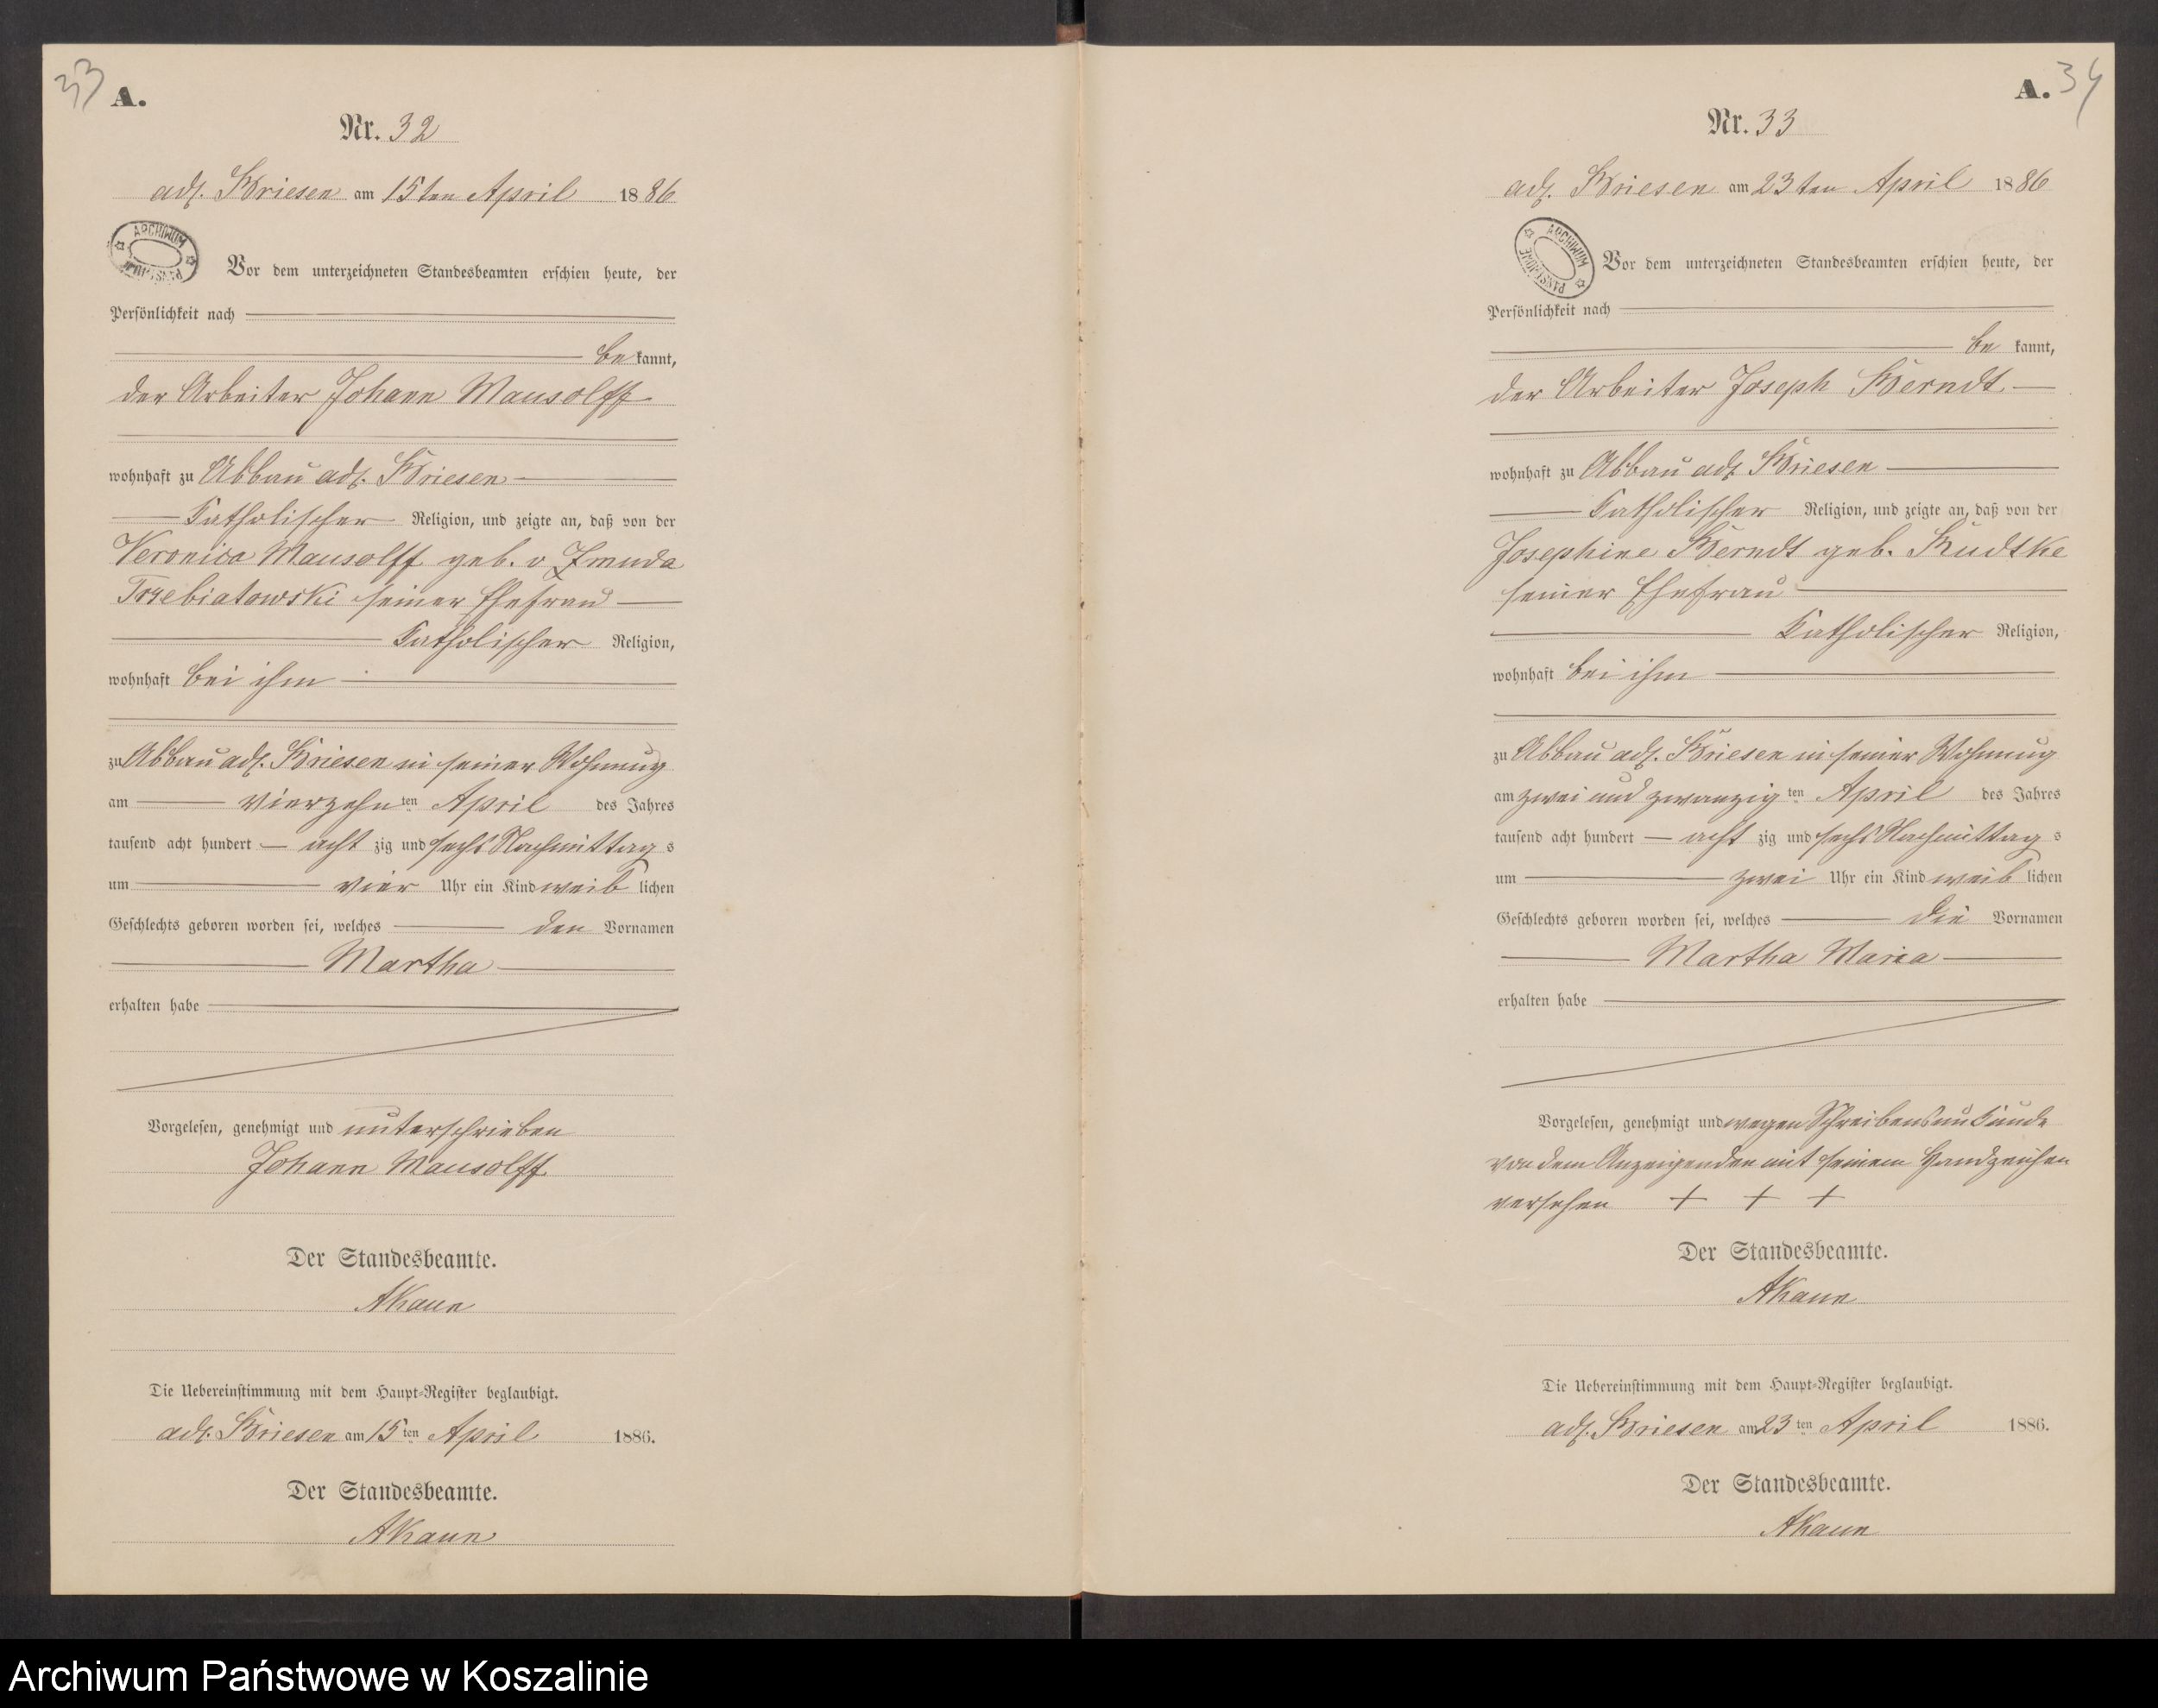 33
A.
Nr. 32
adl. Briesen am 15ten April 1886
ARCHIWUM
PAŃSTWOWE
Vor dem unterzeichneten Standesbeamten erschien heute, der
Persönlichkeit nach
be kannt,
der Arbeiter Johann Mausolff
wohnhaft zu Abbau adl. Briesen
katholischer Religion, und zeigte an, daß von der
Veronica Mausolff geb. v Zmuda
Trzebiatowski seiner Ehefrau
katholischer Religion,
wohnhaft bei ihm
zu Abbau adl. Briesen in seiner Wohnung
am vierzehn ten April des Jahres
tausend acht hundert acht zig und sechs Nachmittag s
um vier Uhr ein Kind weib lichen
Geschlechts geboren worden sei, welches den Vornamen
Martha
erhalten habe
Vorgelesen, genehmigt und unterschrieben
Johann Mausolff
Der Standesbeamte.
AKaun
Die Uebereinstimmung mit dem Haupt-Register beglaubigt.
adl. Briesen am 15 ten April 1886.
Der Standesbeamte.
AKaun
A. 34
Nr. 33
adl. Briesen am 23ten April 1886
ARCHIWUM
PAŃSTWOWE
Vor dem unterzeichneten Standesbeamten erschien heute, der
Persönlichkeit nach
be kannt,
der Arbeiter Joseph Berndt
wohnhaft zu Abbau adl Briesen
katholischer Religion, und zeigte an, daß von der
Josephine Berndt geb. Budtke
seiner Ehefrau
katholischer Religion,
wohnhaft bei ihm
zu Abbau adl. Briesen in seiner Wohnung
am zwei und zwanzig ten April des Jahres
tausend acht hundert acht zig und sechs Nachmittag s
um zwei Uhr ein Kind weib lichen
Geschlechts geboren worden sei, welches die Vornamen
Martha Maria
erhalten habe
Vorgelesen, genehmigt und wegen Schreibensunkunde
von dem Anzeigenden mit seinem Handzeichen
versehen + + +
Der Standesbeamte.
AKaun
Die Uebereinstimmung mit dem Haupt-Register beglaubigt.
adl. Briesen am 23 ten April 1886.
Der Standesbeamte.
AKaun
Archiwum Państwowe w Koszalinie